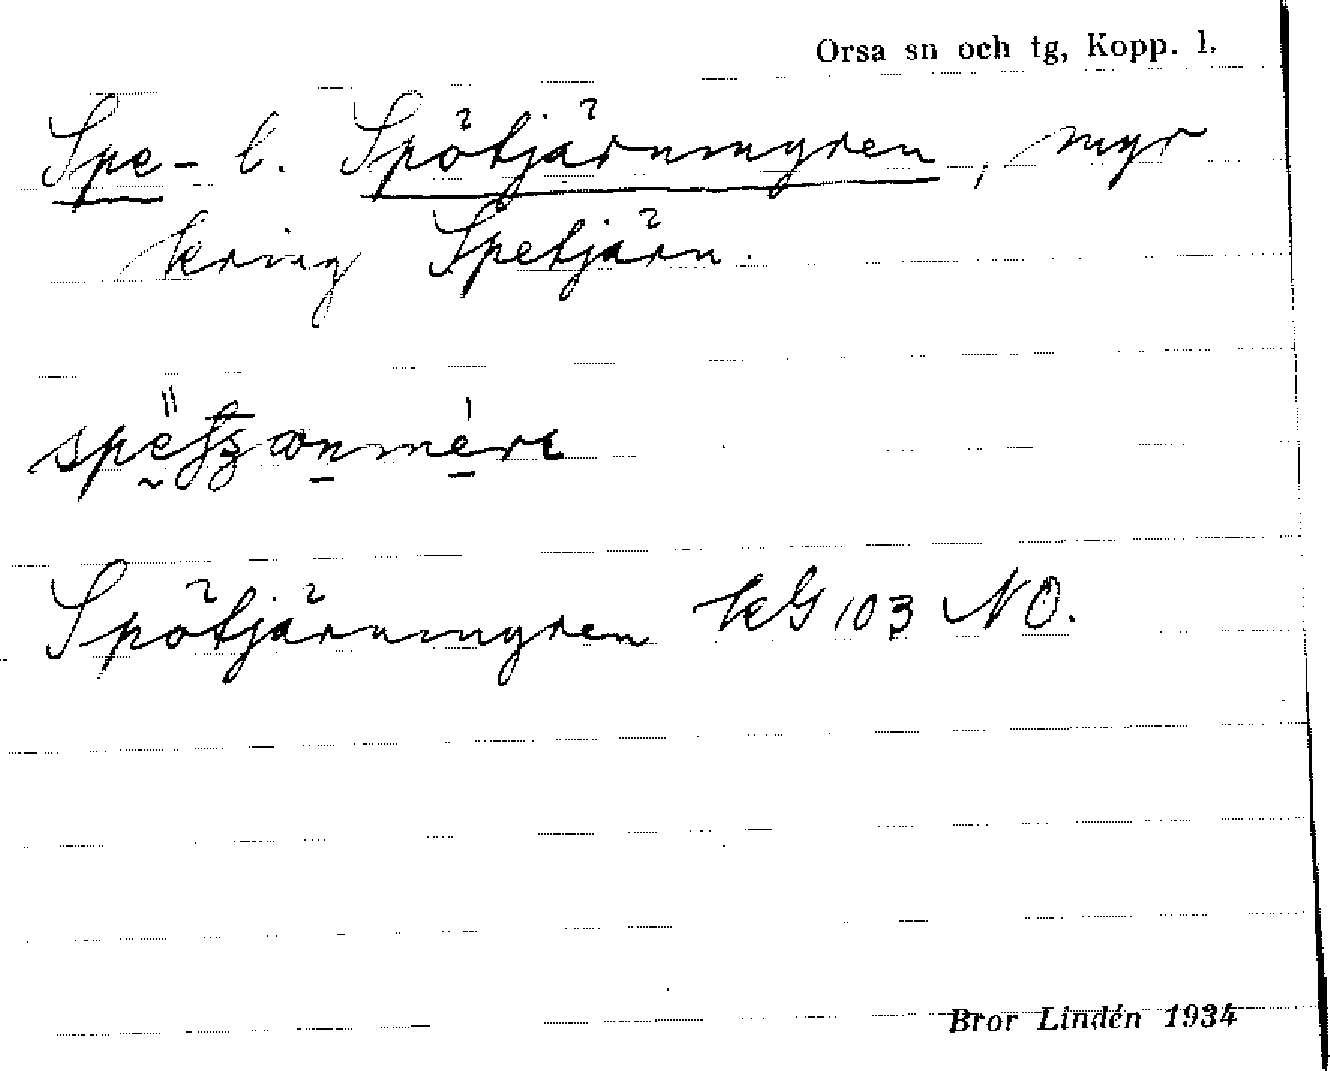 Orsa sn och tg, Kopp. l.
Spe- l. Spötjärnmyren, myr
kring Spetjärn.
Spötjärnmyren kG 103 NO.
Bror Lindén 1934